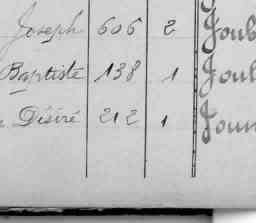 Joseph 606 2 Joub
Baptiste 138 1 Joub
Désiré 212 1 Jour